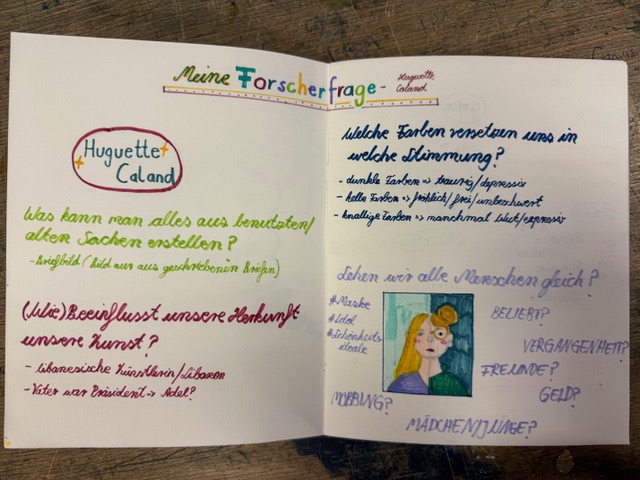 Meine Forscherfrage - Huguette
Caland
Huguette
Caland
Was kann man alles aus benutzten/
alten Sachen erstellen?
- Briefbild (Bild nur aus geschriebenen Briefen)
(Wie) Beeinflusst unsere Herkunft
unsere Kunst?
- libanesische Künstlerin/Libanon
- Vater war Präsident => Adel?
Welche Farben versetzen uns in
welche Stimmung?
- dunkle Farben => traurig/depressiv
- helle Farben => fröhlich/frei/unbeschwert
- knallige Farben => manchmal Wut/expressiv
Sehen wir alle Menschen gleich?
#Maske
#Idol
#Schönheits
ideale
BELIEBT?
VERGANGENHEIT?
FREUNDE?
GELD?
MOBBING?
MÄDCHEN/JUNGE?